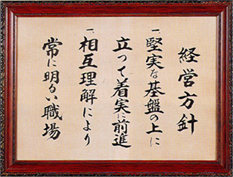 経営方針
一、堅実な基盤の上に
立つて着実に前進
一、相互理解により
常に明るい職場